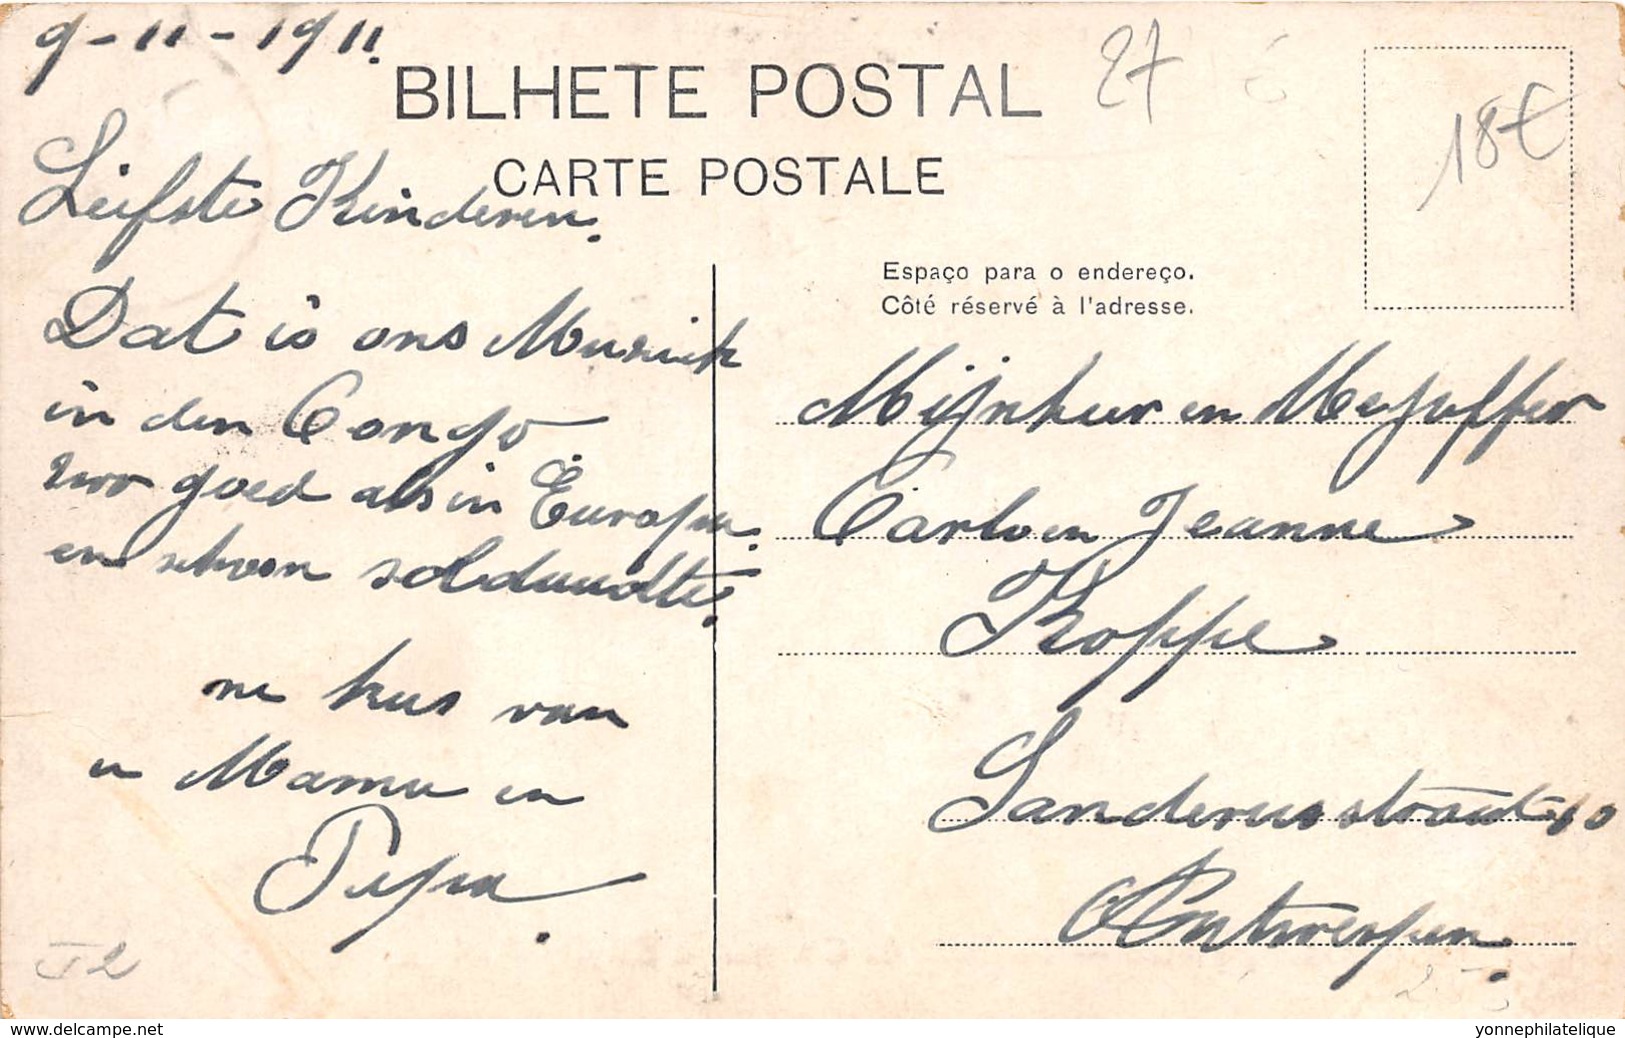 9-11-1911.
BILHETE POSTAL
27
18€
CARTE POSTALE
Liefste Kinderen.
Espaço para o endereço.
Côté réservé à l'adresse.
Dat is ons Muziek
in den Congo
zoo goed als in Europa.
en schoon solduudte.
ne kus van
u Mama en
Papa.
Mijnheer en Mejuffer
Carlo en Jeanne
Koppe
Sanderusstraat 10
Antwerpen.
www.delcampe.net
yonnephilatelique